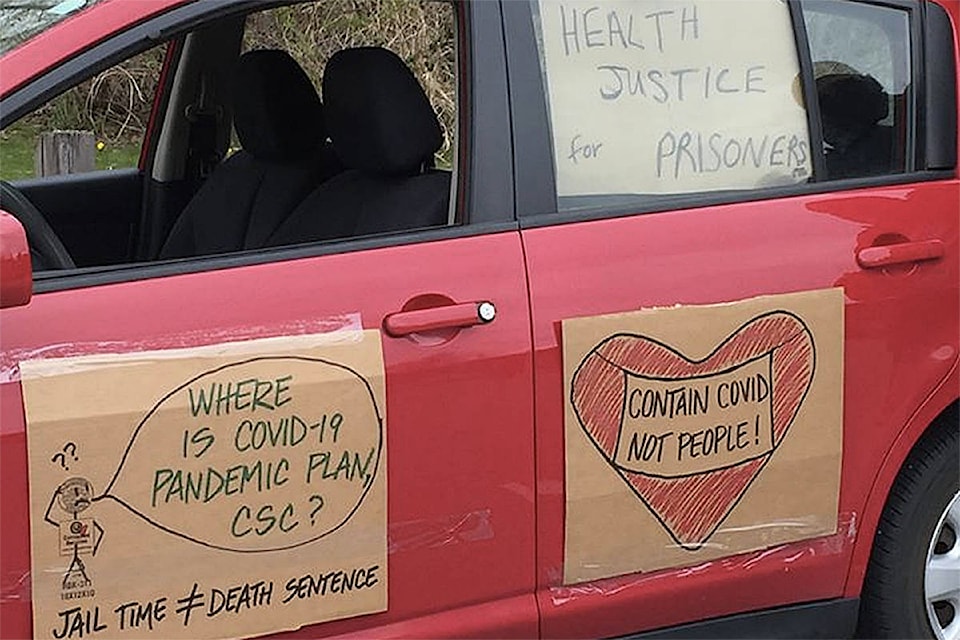 HEALTH
JUSTICE
for PRISONERS
??
WHERE
IS COVID-19
PANDEMIC PLAN,
CSC?
JAIL TIME ≠ DEATH SENTENCE
CONTAIN COVID
NOT PEOPLE!